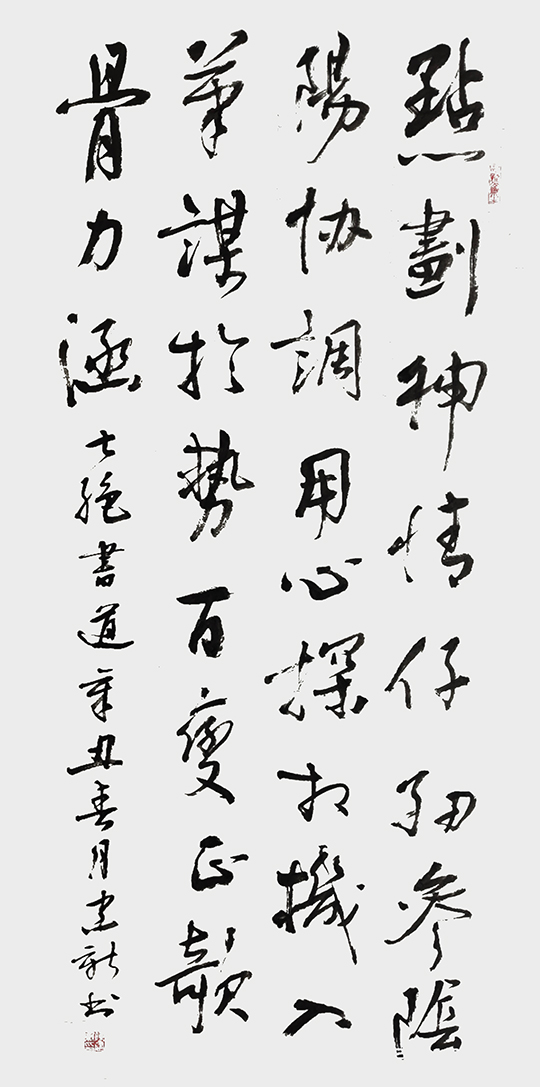 點劃神情仔細參陰
陽协調用心探相機入
筆謀於勢百變正欹
骨力涵
七絕書道辛丑春月新书